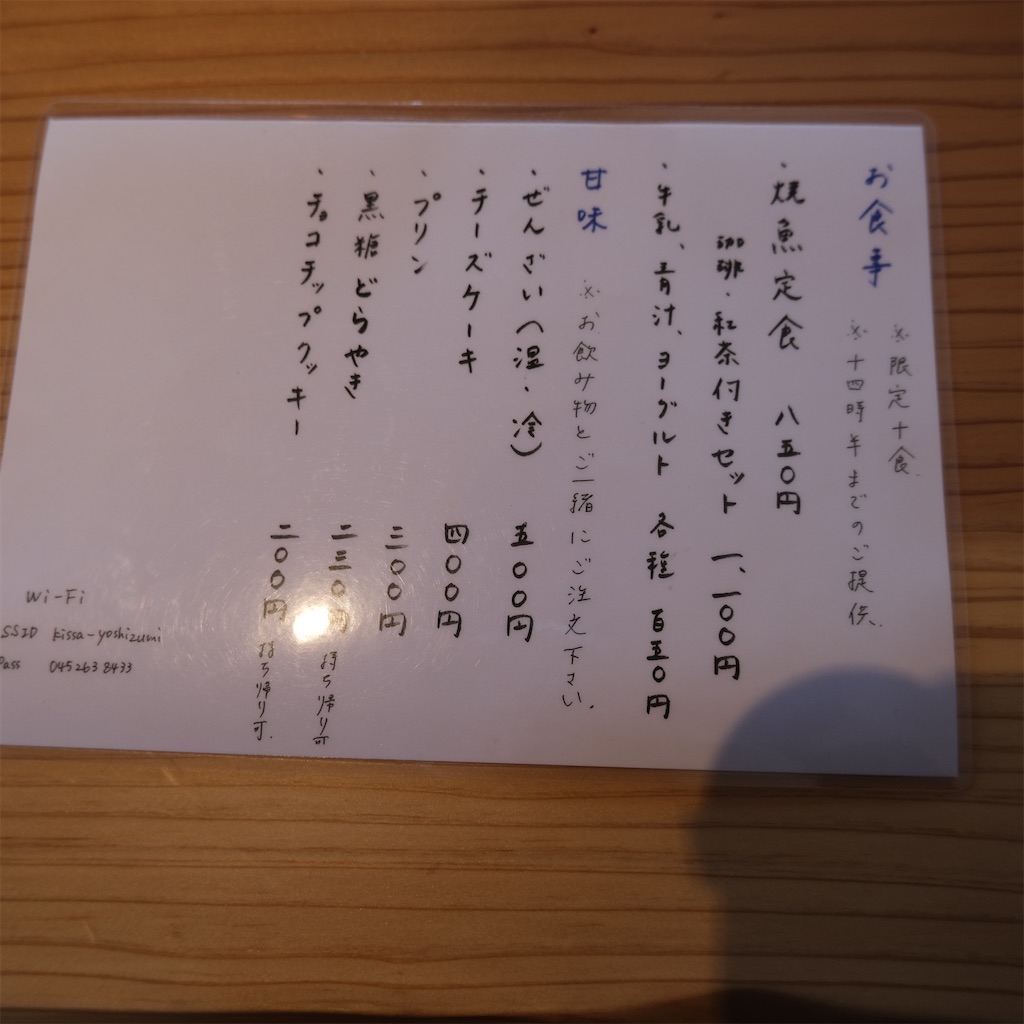 お食事
※限定十食
※十四時半までのご提供。
・焼魚定食 八五〇円
珈琲・紅茶付きセット 一、一〇〇円
・牛乳、青汁、ヨーグルト 各種 百五〇円
甘味 ※お飲み物とご一緒にご注文下さい。
・ぜんざい(温・冷) 五〇〇円
・チーズケーキ 四〇〇円
・プリン 三〇〇円
・黒糖どらやき 二三〇円 持ち帰り可
・チョコチップクッキー 二〇〇円 持ち帰り可。
Wi-Fi
SSID kissa-yoshizumi
Pass 045263 8433